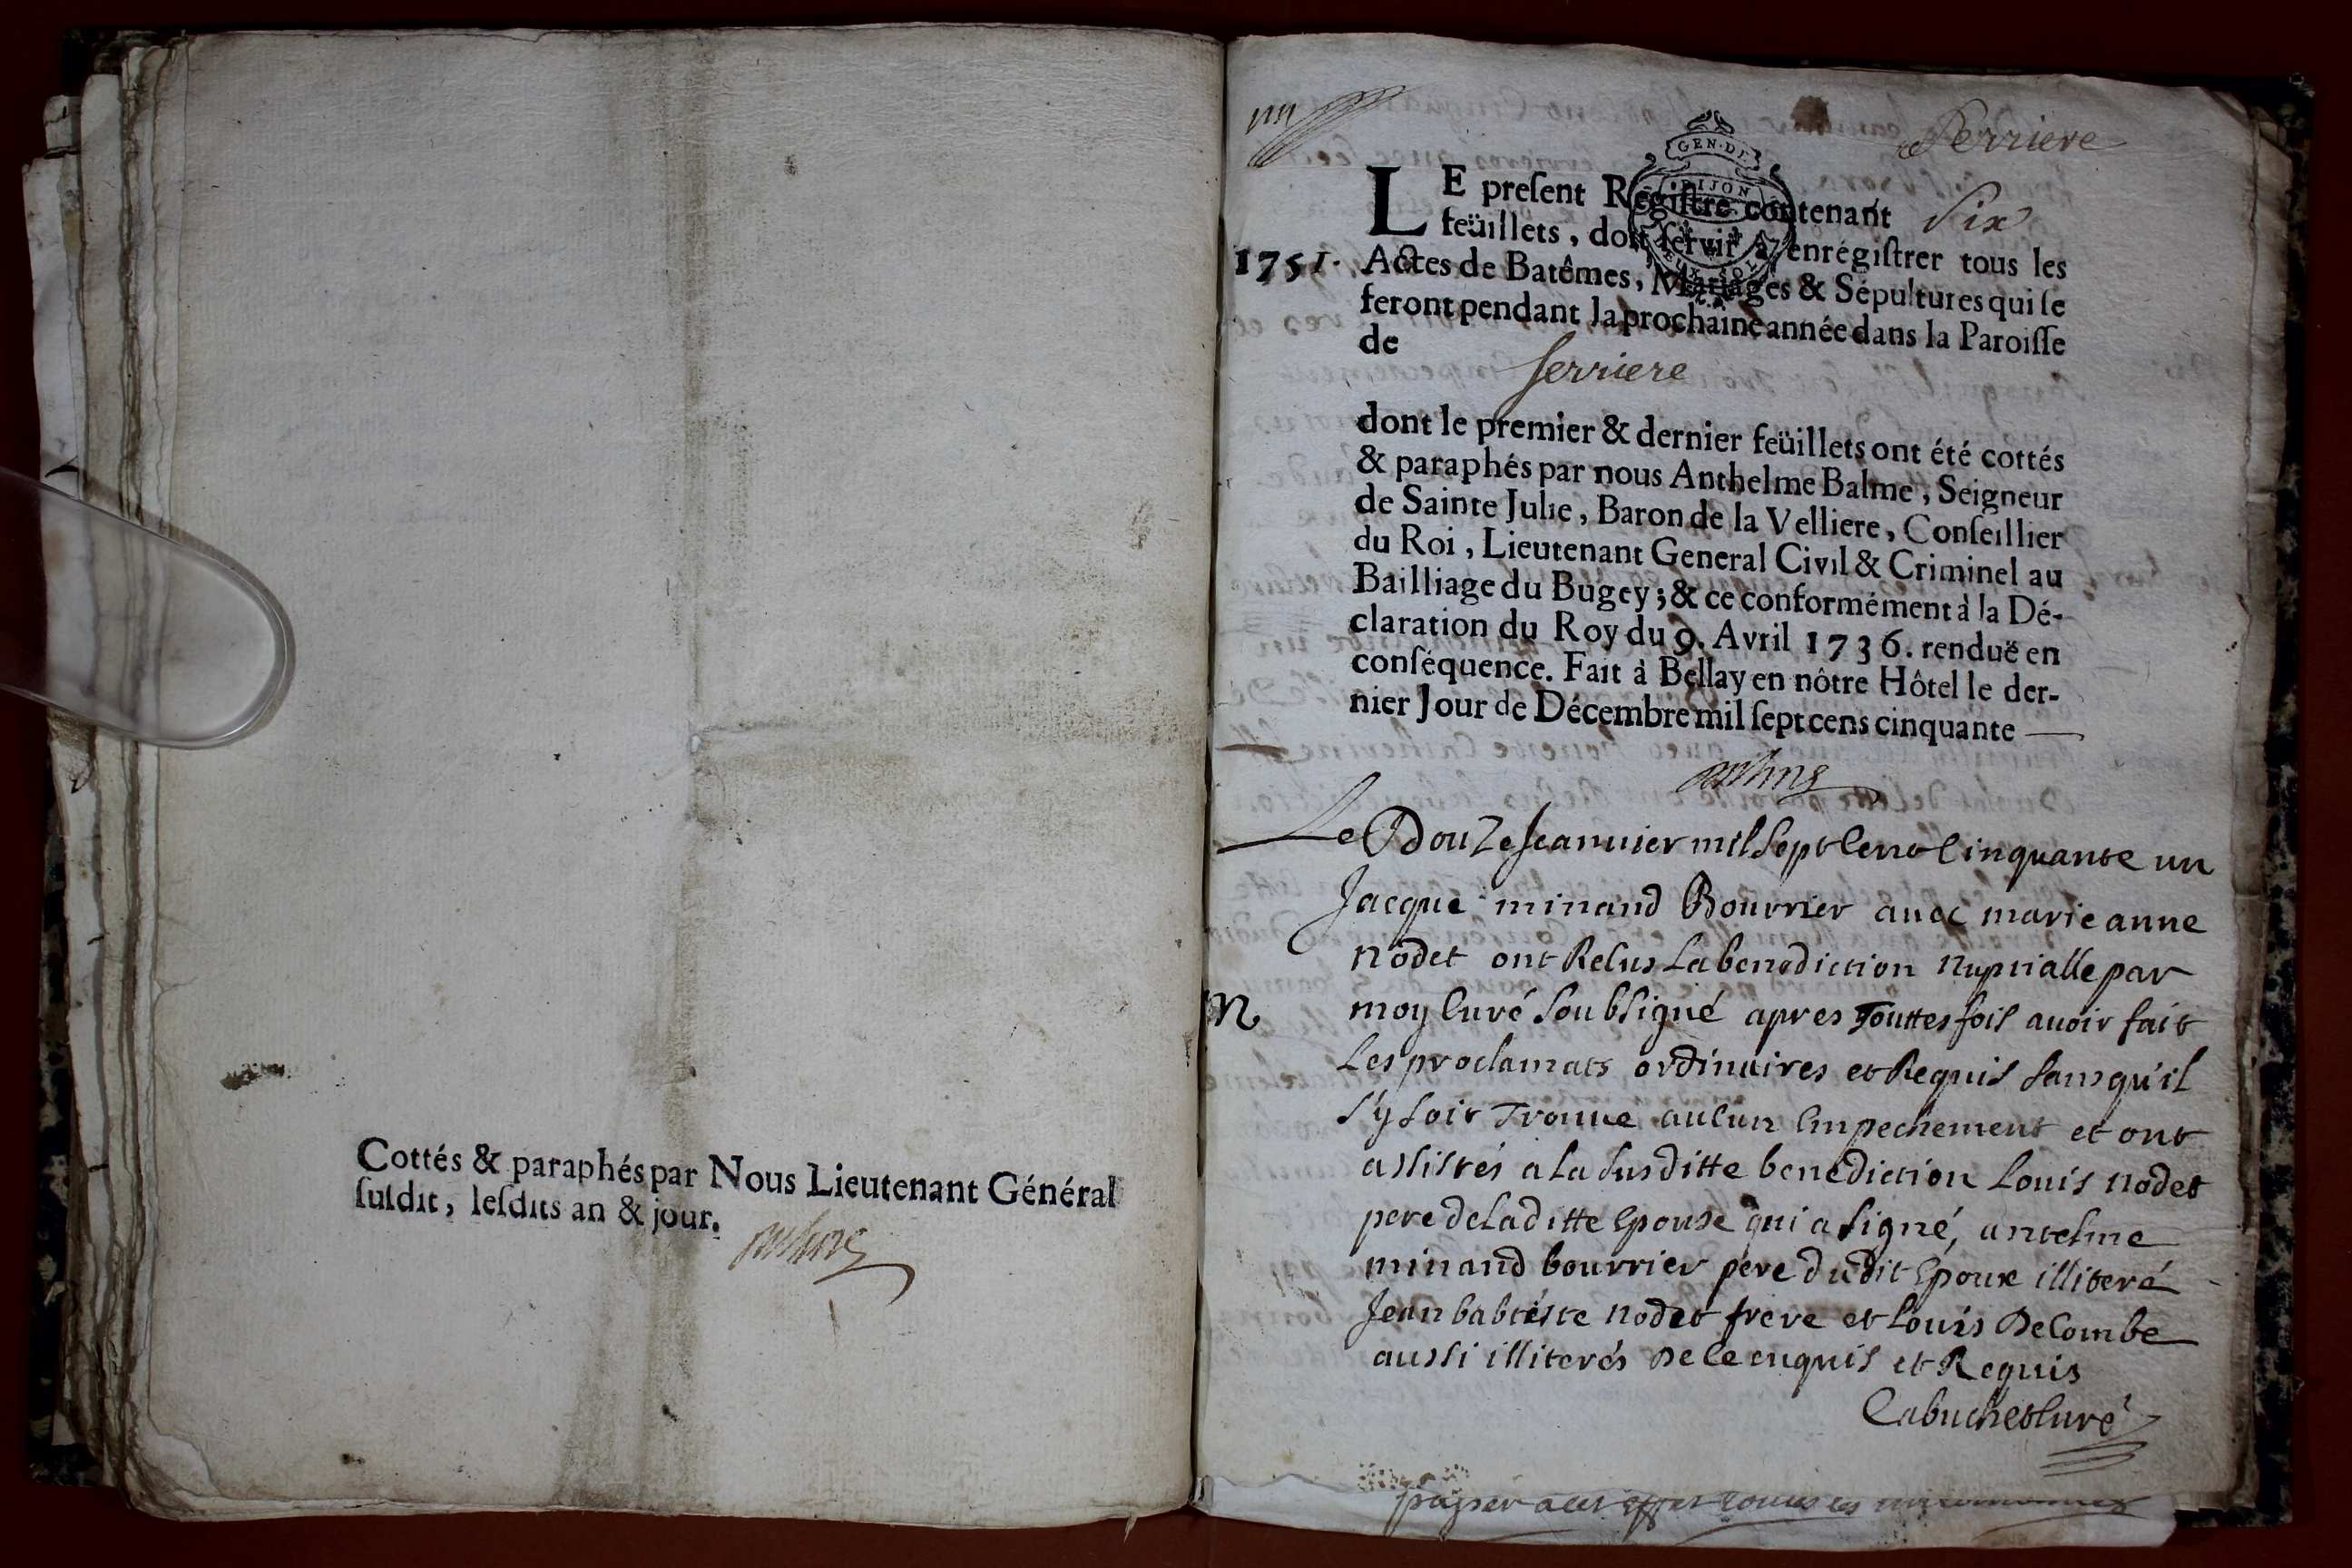 Cottés & paraphés par Nous Lieutenant Général
ſuſdit, leſdits an & jour.
un
Serriere
GEN·DE
DIJON
LE preſent Regiſtre contenant Six
feüillets, doit ſervir à enrégiſtrer tous les
1751. Actes de Batêmes, Mariages & Sépultures qui ſe
feront pendant la prochaine année dans la Paroiſſe
de Serriere
dont le premier & dernier feüillets ont été cottés
& paraphés par nous Anthelme Balme, Seigneur
de Sainte Julie, Baron de la Velliere, Conſeillier
du Roi, Lieutenant General Civil & Criminel au
Bailliage du Bugey; & ce conformément à la Dé-
claration du Roy du 9. Avril 1736. renduë en
conſéquence. Fait à Bellay en nôtre Hôtel le der-
nier Jour de Décembre mil ſept cens cinquante
Le Douze Jeanvier mil Sept Cent Cinquante un
Jacque minand Bourrier avec marie anne
nodet ont Recus La benediction Nuptialle par
M moy Curé Soubsigné apres Touttes fois avoir fait
Les proclamats ordinaires et Requis Sans qu'il
s'y soit Trouve aucun Empechement et ont
assistés a La Susditte benediction Louis nodet
pere de Laditte Epouse qui a signé, antelme
minand bourrier pere dudit Epoux illiteré
Jean babtiste nodet frere et Louis DeCombe
aussi illiterés De Ce enquis et Requis
Cabuchet Curé